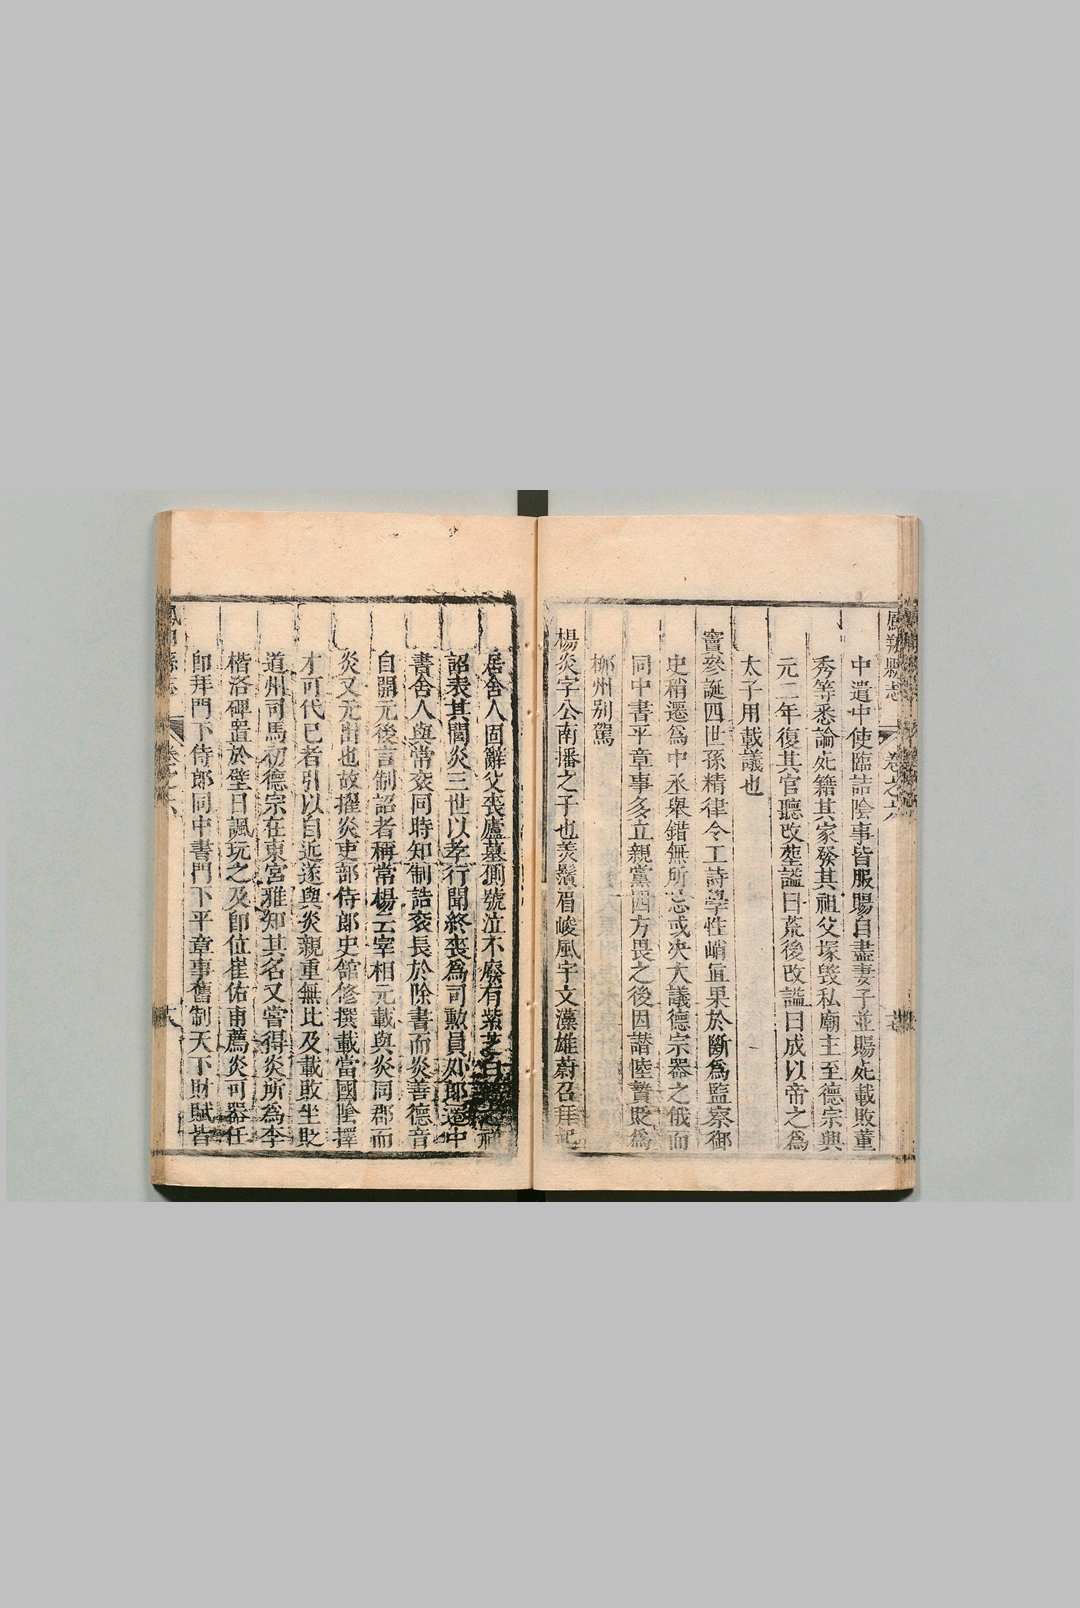 鳳翔縣志 卷之六
中遣中使臨詰陰事皆服賜自盡妻子並賜死載敗董
秀等悉論死籍其家發其祖父塚毁私廟主至德宗興
元二年復其官聽改塟謚曰荒後改謚曰成以帝之爲
太子用載議也
竇參誕四世孫精律令工詩學性峭直果於斷爲監察御
史稍遷爲中丞舉錯無所忌或决大議德宗器之俄而
同中書平章事多立親黨四方畏之後因譛陸贄貶爲
郴州别駕
楊炎字公南播之子也美鬚眉峻風宇文藻雄蔚召拜起
居舍人固辭父喪廬墓側號泣不廢有紫芝白
詔表其閭炎三世以孝行聞終喪爲司勲員外郎遷中
書舍人與常衮同時知制誥衮長於除書而炎善德音
自開元後言制詔者稱常楊云宰相元載與炎同郡而
炎又元出也故擢炎吏部侍郎史館修撰載當國陰擇
才可代已者引以自近遂與炎親重無比及載敗坐貶
道州司馬初德宗在東宮雅知其名又嘗得炎所爲李
楷洛碑置於壁日諷玩之及卽位崔佑甫薦炎可器任
卽拜門下侍郎同中書門下平章事舊制天下財賦皆
縣志 卷之六